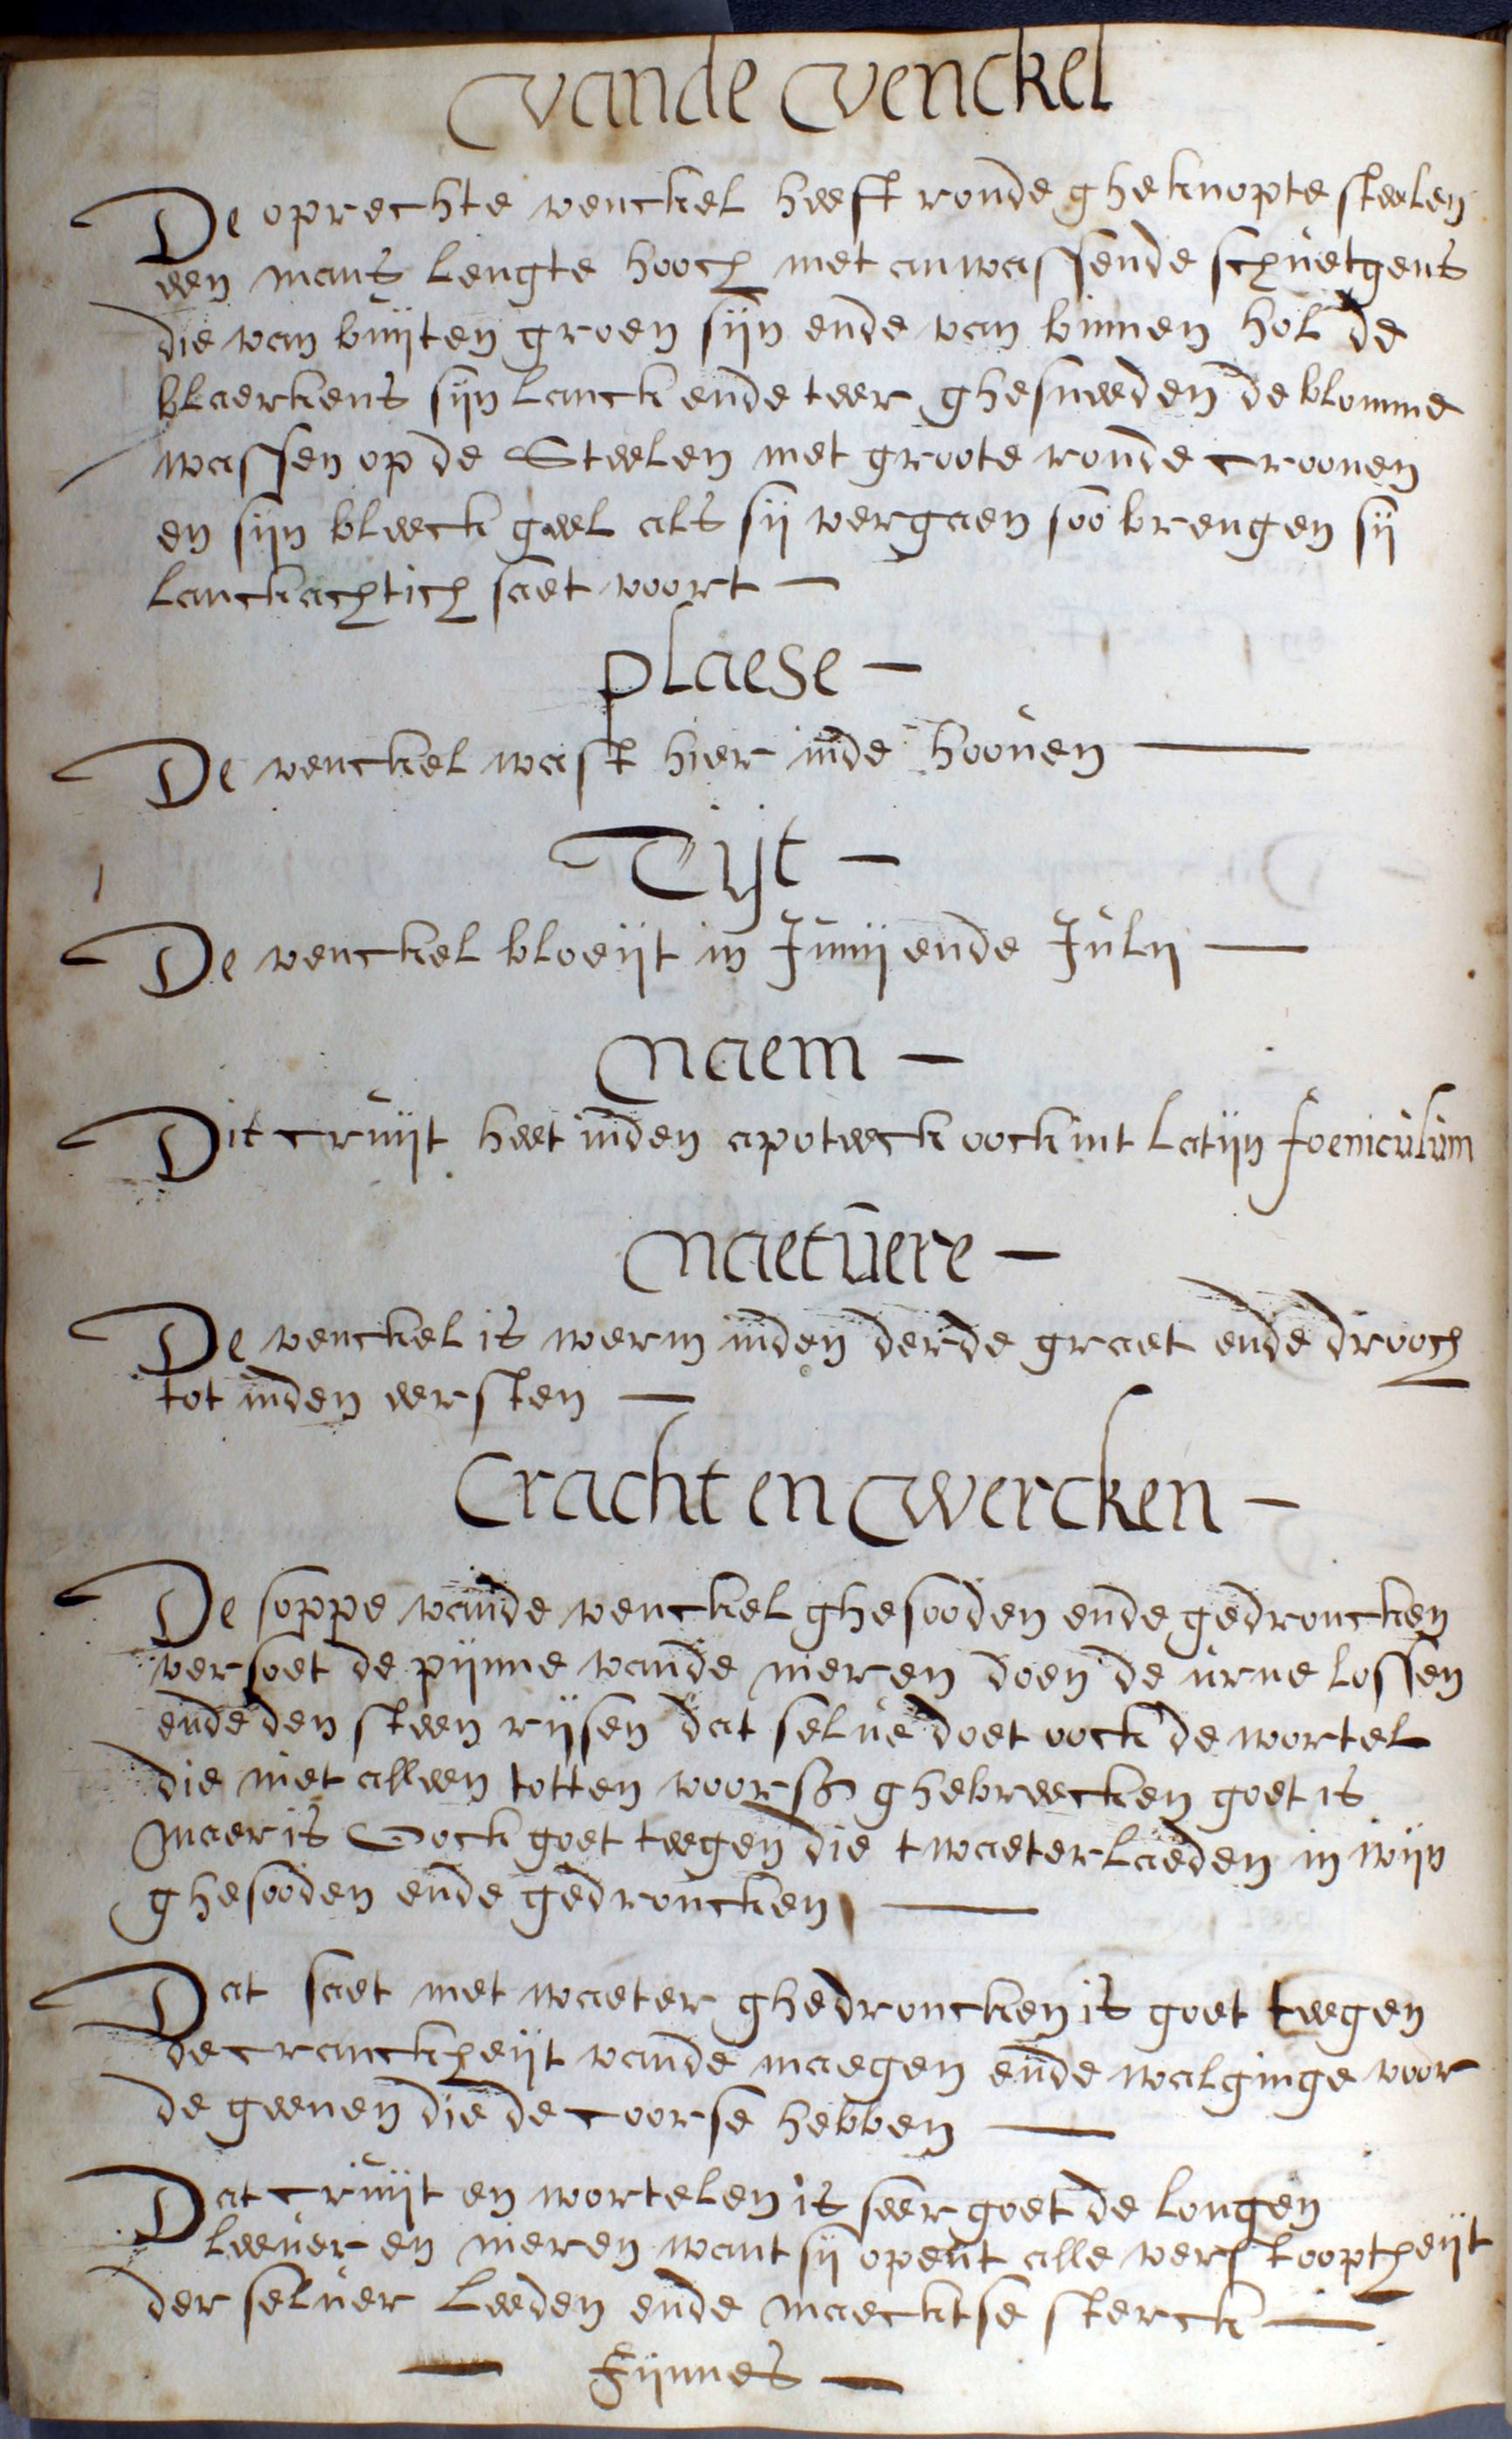 vande venckel
De oprechte venckel heeft ronde gheknopte steelen
een mans lengte hooch met anwassende schuetgens
die van buijten groen sijn ende van binnen hol de
blaerkens sijn lanck ende teer ghesneeden de blomme
wassen op de Steelen met groote ronde croonen
en sijn bleeck geel als sij vergaen soo brengen sij
lanckachtich saet voort —
plaese —
De venckel wast hier inde hoouen —
Tijt —
De venckel bloeijt in Junij ende Julij —
naem —
Dit cruijt heet inden apoteeck oock int latijn foeniculum
naetuere —
De venckel is werm inden derde graet ende drooch
tot inden eersten —
Cracht en wercken —
De soppe vande venckel ghesooden ende gedroncken
versoet de pijnne vande nieren doen de urne lossen
ende den steen rijsen dat selue doet oock de wortel
die niet alleen totten voors ghebreecken goet is
maer is Oock goet teegen die twaeterlaeden in wijn
ghesooden ende gedroncken —
Dat saet met waeter ghedroncken is goet teegen
de cranckheijt vande maegen ende walginge voor
de geenen die de coorse hebben —
Dat cruijt en wortelen is seer goet de longen
leeuer en nieren want sij opent alle verstooptheijt
der seluer leeden ende maecktse sterck —
— Fijnnes —